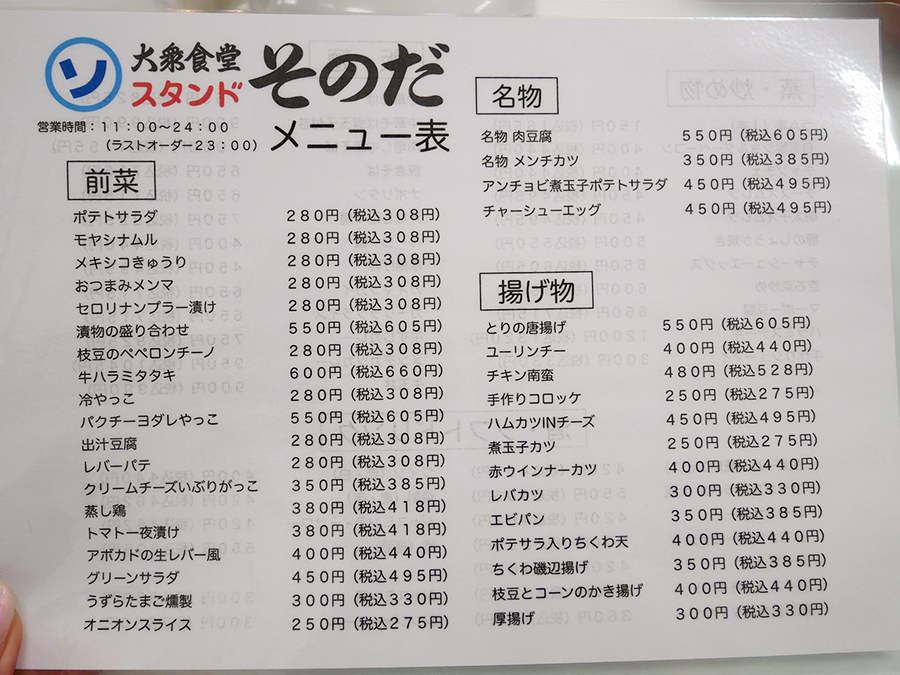 ソ
大衆食堂
スタンド
そのだ
営業時間:11:00〜24:00
(ラストオーダー23:00)
メニュー表
前菜
ポテトサラダ 280円(税込308円)
モヤシナムル 280円(税込308円)
メキシコきゅうり 280円(税込308円)
おつまみメンマ 280円(税込308円)
セロリナンプラー漬け 280円(税込308円)
漬物の盛り合わせ 550円(税込605円)
枝豆のペペロンチーノ 280円(税込308円)
牛ハラミタタキ 600円(税込660円)
冷やっこ 280円(税込308円)
パクチーヨダレやっこ 550円(税込605円)
出汁豆腐 280円(税込308円)
レバーパテ 280円(税込308円)
クリームチーズいぶりがっこ 350円(税込385円)
蒸し鶏 380円(税込418円)
トマト一夜漬け 380円(税込418円)
アボカドの生レバー風 400円(税込440円)
グリーンサラダ 450円(税込495円)
うずらたまご燻製 300円(税込330円)
オニオンスライス 250円(税込275円)
名物
名物 肉豆腐 550円(税込605円)
名物 メンチカツ 350円(税込385円)
アンチョビ煮玉子ポテトサラダ 450円(税込495円)
チャーシューエッグ 450円(税込495円)
揚げ物
とりの唐揚げ 550円(税込605円)
ユーリンチー 400円(税込440円)
チキン南蛮 480円(税込528円)
手作りコロッケ 250円(税込275円)
ハムカツINチーズ 450円(税込495円)
煮玉子カツ 250円(税込275円)
赤ウインナーカツ 400円(税込440円)
レバカツ 300円(税込330円)
エビパン 350円(税込385円)
ポテサラ入りちくわ天 400円(税込440円)
ちくわ磯辺揚げ 350円(税込385円)
枝豆とコーンのかき揚げ 400円(税込440円)
厚揚げ 300円(税込330円)